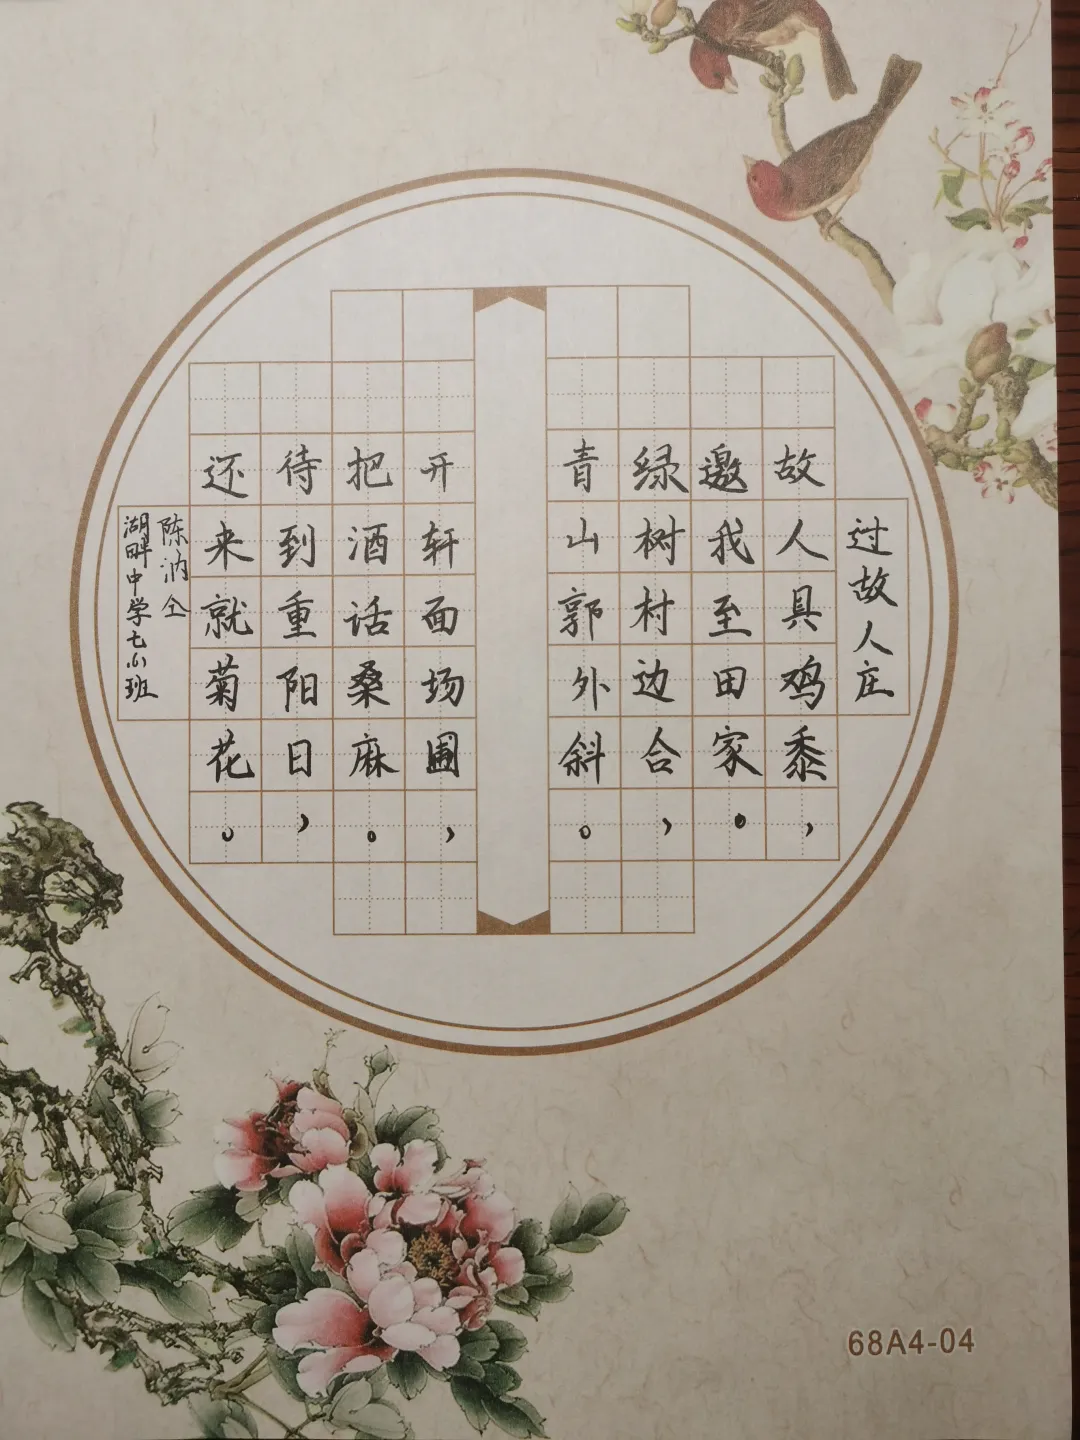 过故人庄
故人具鸡黍，
邀我至田家。
绿树村边合，
青山郭外斜。
开轩面场圃，
把酒话桑麻。
待到重阳日，
还来就菊花。
陈汭仝
湖畔中学七小班
68A4-04